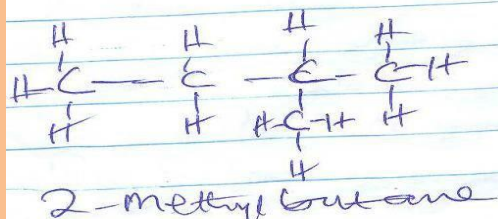 H H H H
H-C-C-C-C-H
H H H-C-H H
H
2-methyl butane